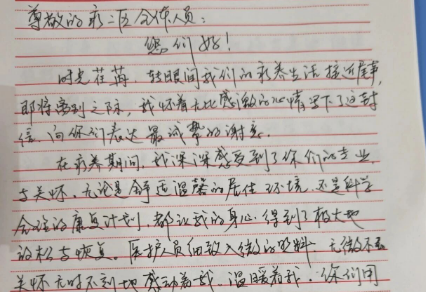 尊敬的疗二区全体人员：
您们好！
时光荏苒，转眼间我们的疗养生活接近尾声，
即将离别之际，我怀着无比感激的心情写下了这封
信，向你们表达最诚挚的谢意。
在疗养期间，我深深感受到了你们的专业
与关怀。无论是舒适温馨的居住环境，还是科学
合理的康复计划，都让我的身心得到了极大地
放松与恢复。医护人员细致入微的照料，无微不至
关怀无时不刻地感动着我，温暖着我。你们用